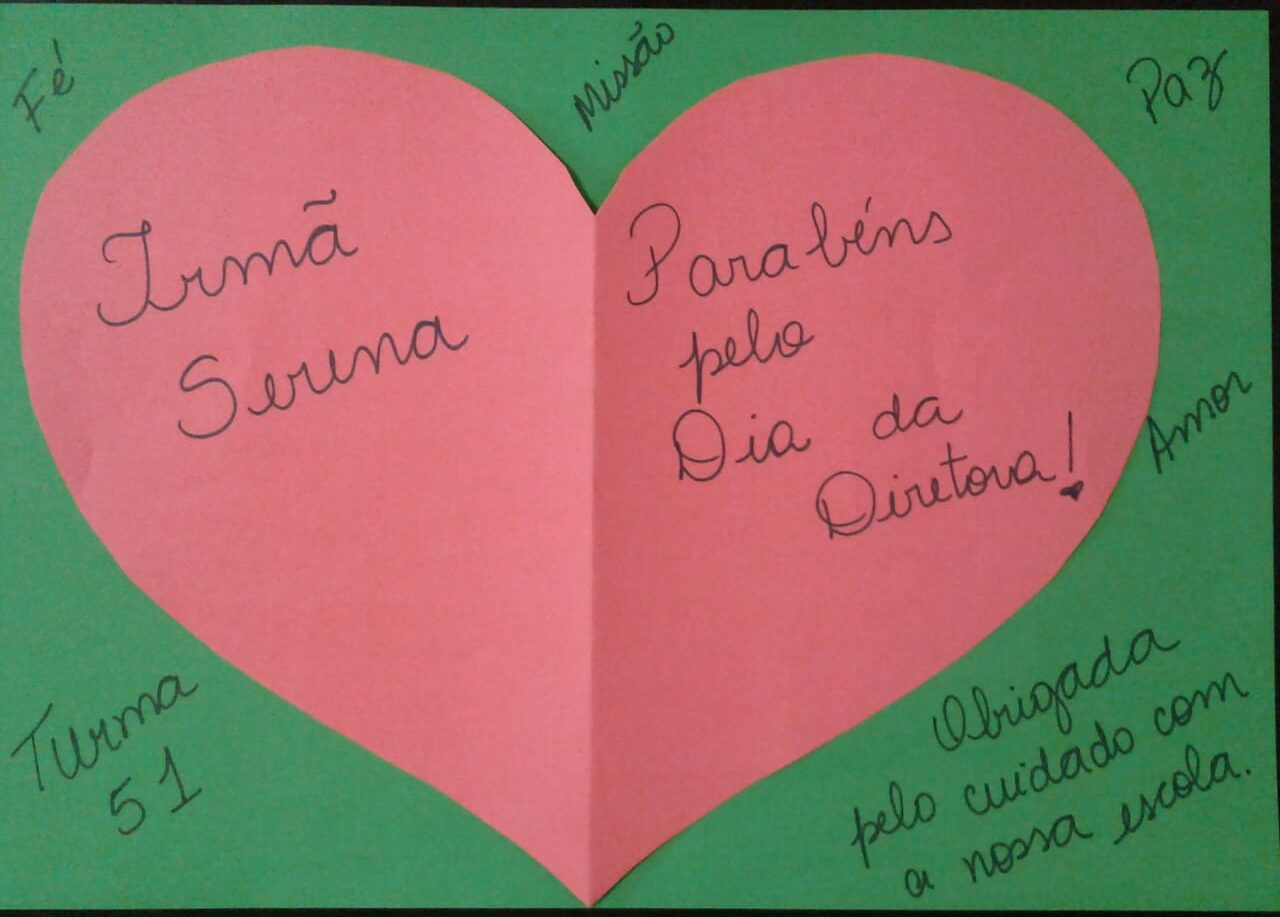 Fé
Missão
Paz
Irmã
Serena
Parabéns
pelo
Dia da
Diretora!
Amor
Turma
51
Obrigada
pelo cuidado com
a nossa escola.